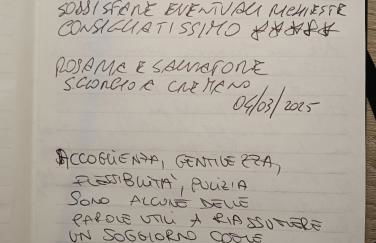 SODDISFARE EVENTUALI RICHIESTE
CONSIGLIATISSIMO ★★★★★
ROSARIA E SALVATORE
S GIORGIO A CREMANO
04/03/2025
ACCOGLIENZA, GENTILEZZA,
FLESSIBILITÀ, PULIZIA
SONO ALCUNE DELLE
PAROLE UTILI A RIASSUMERE
UN SOGGIORNO